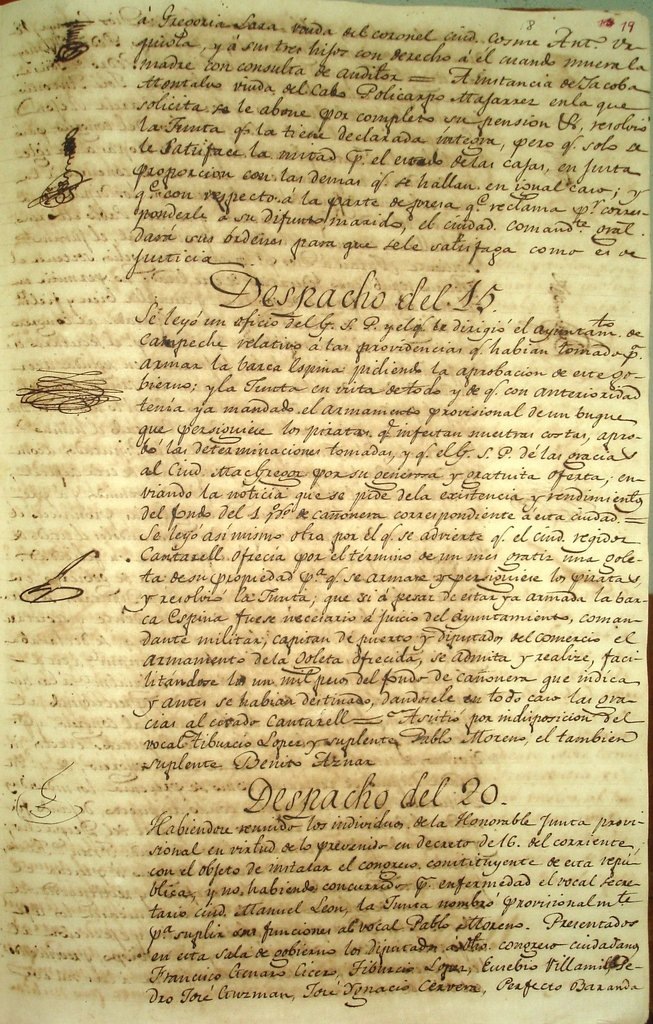 8 19
á Gregoria Lara viuda del coronel ciud. Cosme Ant.
quiola, y á sus tres hijos con derecho á él cuando muera la
madre con consulta de auditor = A instancia de Jacoba
Montalvo viuda del Cabo Policarpo Majarrez en la que
solicita se le abone por completo su pension &., resolvió
la Junta q.e la tiene declarada íntegra, pero q.e solo se
le satisface la mitad p.r el estado de las cajas, en justa
proporcion con las demas q.e se hallan en igual caso; y
q.e con respecto á la parte de presa q.e reclama p.r corres-
ponderle á su difunto marido, el ciudad. comand.te gral.
dará sus órdenes para que sele satisfaga como es de
justicia
Despacho del 15
Se leyó un oficio del G. S. P. y el q.e le dirigió el ayuntam.to de
Campeche relativo á las providencias q.e habian tomado p.a
armar la barca Espina pidiendo la aprobacion de este go-
bierno; y la Junta en vista de todo y de q.e con anterioridad
tenia ya mandado el armamento provisional de un buque
que persiguiese los piratas q.e infestan nuestras costas, apro-
bó las determinaciones tomadas, y q.e el G. S. P. de las gracias
al Ciud. MacGregor por su generosa y gratuita oferta; en-
viando la noticia que se pide de la existencia y rendimientos
del fondo del 1 p% de cañonera correspondiente á esta ciudad. =
Se leyó asi mismo otro por el q.e se advierte q.e el ciud. regidor
Cantarell ofrecia por el término de un mes gratis una gole-
ta de su propiedad p.a q.e se armase y persiguiese los piratas,
y resolvió la Junta; que si á pesar de estar ya armada la bar-
ca Espina fuese necesario á juicio del ayuntamiento, coman-
dante militar, capitan de puerto y diputados del comercio el
armamento de la Goleta ofrecida, se admita y realize, faci-
litandose los un mil pesos del fondo de cañonera que indica
y antes se habian destinado, dandosele en todo caso las gra-
cias al citado Cantarell = Asistió por indisposicion del
vocal Tiburcio Lopez y suplente Pablo Moreno, el tambien
suplente Benito Aznar
Despacho del 20.
Habiendose reunido los individuos de la Honorable Junta provi-
sional en virtud de lo prevenido en decreto de 16. del corriente,
con el objeto de instalar el congreso constituyente de esta repú-
blica, y no habiendo concurrido p.r enfermedad el vocal secre-
tario Ciud. Manuel Leon, la Junta nombró provisionalm.te
p.a suplir sus funciones al vocal Pablo Moreno. Presentados
en esta sala de gobierno los diputados á dho. congreso ciudadanos
Francisco Genaro Cicero, Tiburcio Lopez, Eusebio Villamil, Pe-
dro José Guzman, José Ygnacio Cervera, Perfecto Baranda